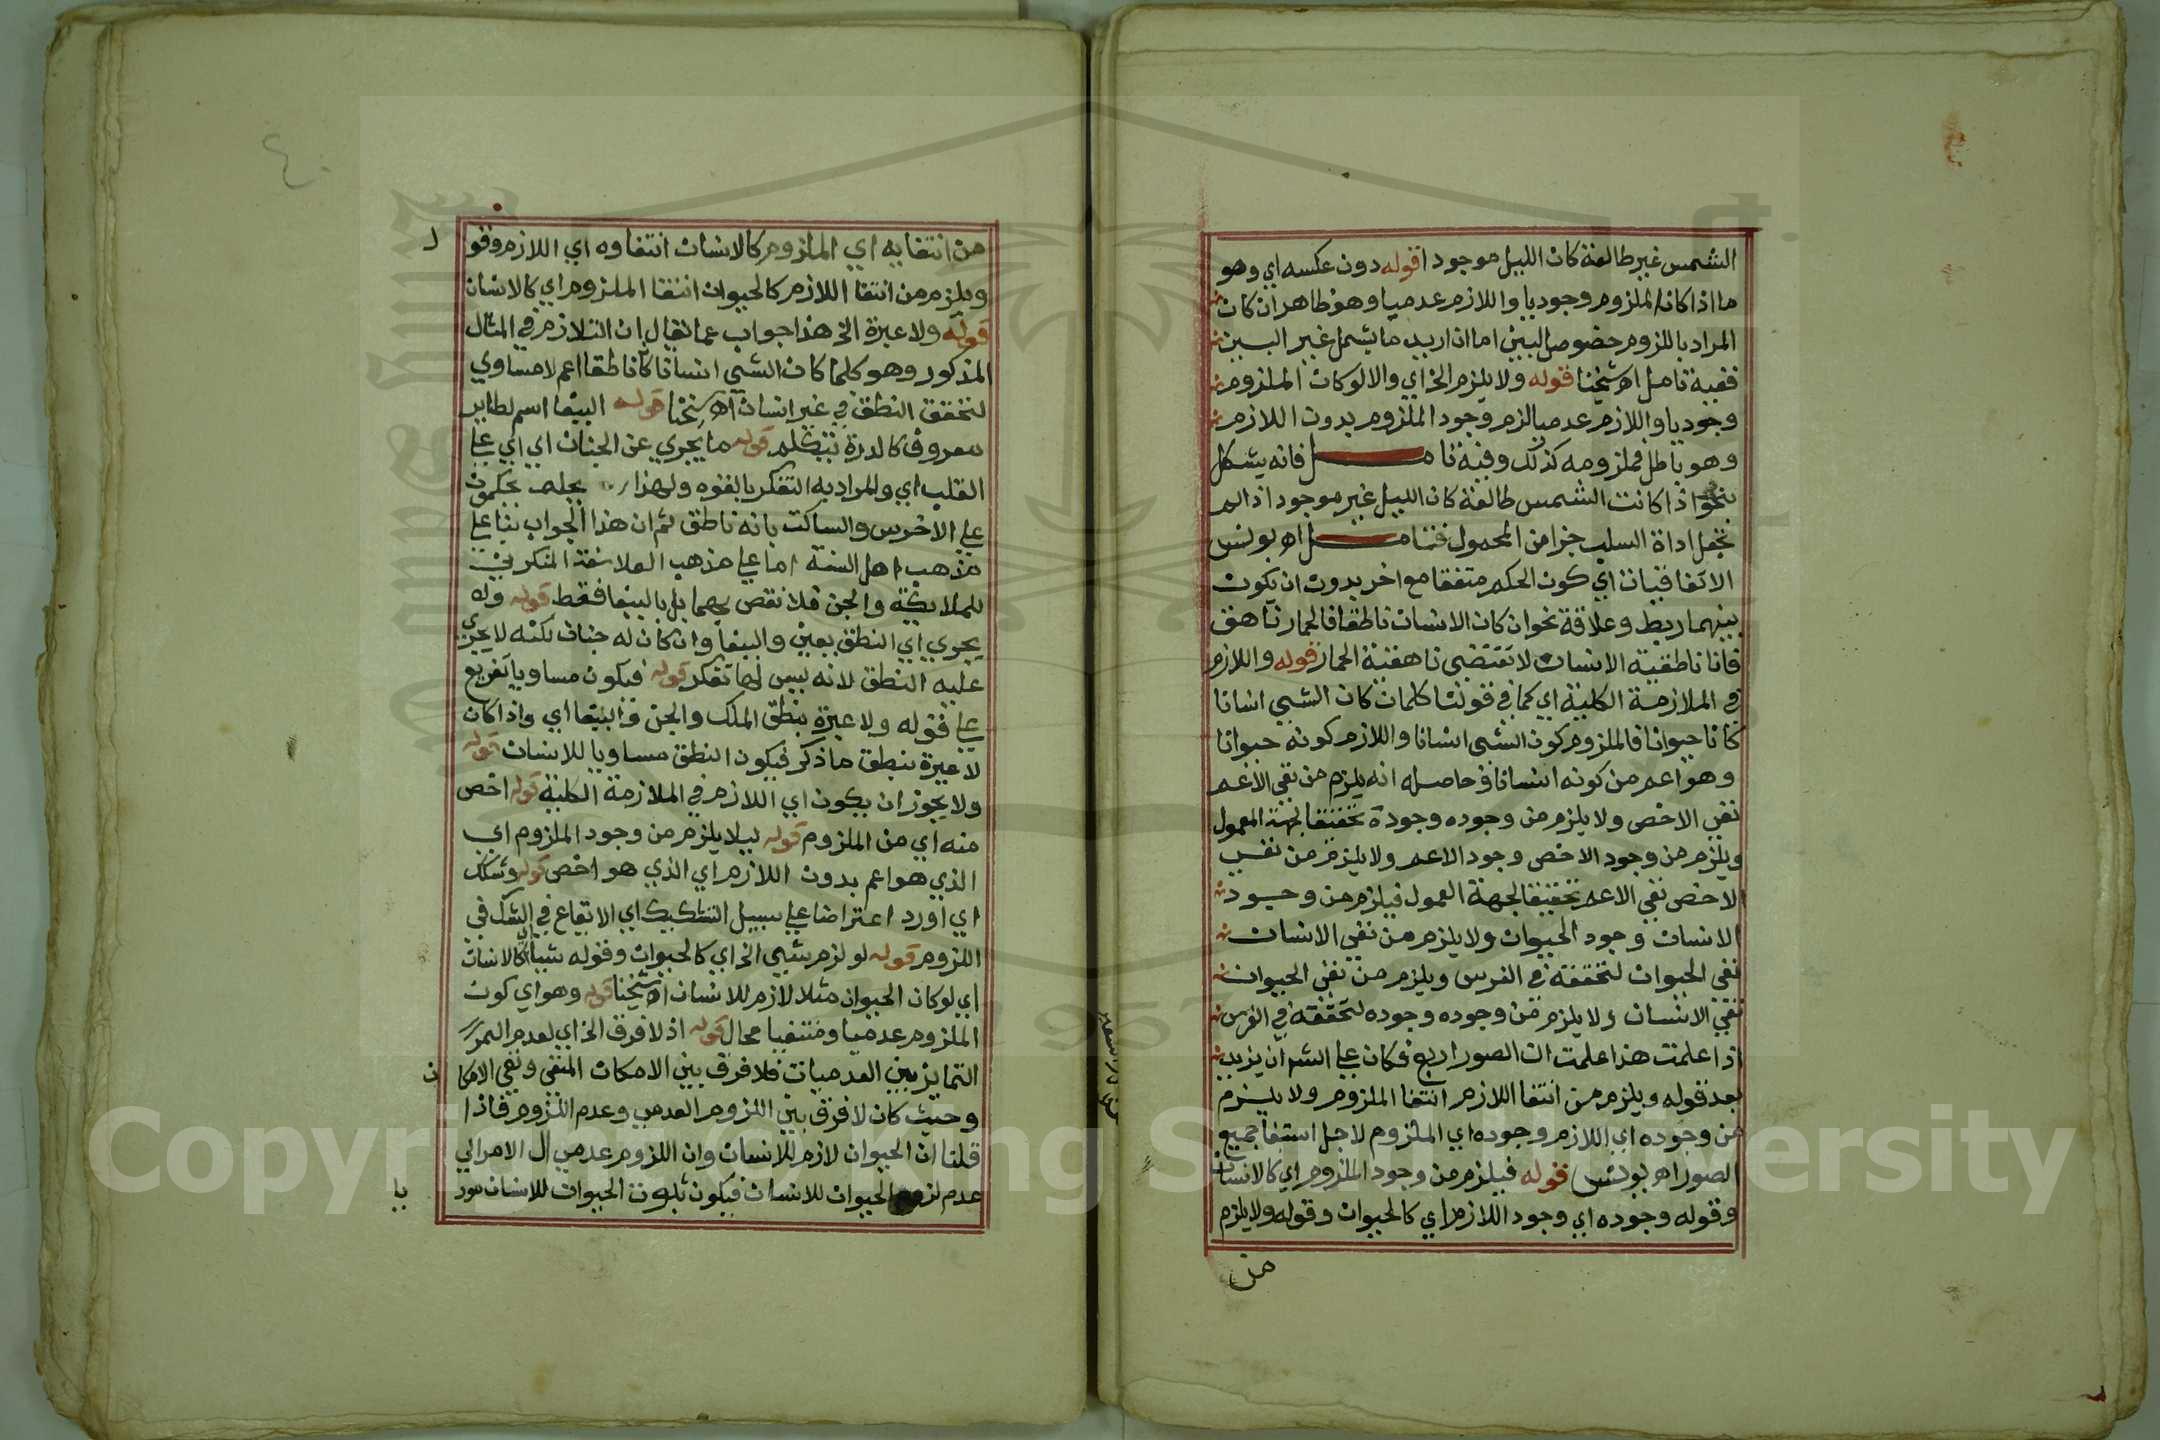 الشمس غير طالعة كان الليل موجودا قوله دون عكسه اي وهو
ما اذا كان الملزوم وجوديا واللازم عدميا وهو ظاهر ان كان
المراد باللزوم خصوص البين اما ان اريد ما يشمل غير البين
ففيه تامل اه شيخنا قوله ولا يلزم الخ اي والا لو كان الملزوم
وجوديا واللازم عدميا لزم وجود الملزوم بدون اللازم
وهو باطل فملزومه كذلك وفيه تامل فانه يشكل
بنحو اذا كانت الشمس طالعة كان الليل غير موجود اذا لم
تجعل اداة السلب جزا من المحمول فتامل اه يونس
الاتفاقيات اي كون الحكم متفقا مع اخر بدون ان يكون
بينهما ربط وعلاقة نحو ان كان الانسان ناطقا فالحمار ناهق
فانا ناطقية الانسان لا تقتضي ناهقية الحمار قوله واللازم
في الملازمة الكلية اي كما في قولنا كلما كان الشي انسانا
كانا حيوانا فالملزوم كون الشي انسانا واللازم كونه حيوانا
وهو اعم من كونه انسانا وحاصله انه يلزم من نفي الاعم
نفي الاخص ولا يلزم من وجوده وجوده تحقيقا لجهة العمول
ويلزم من وجود الاخص وجود الاعم ولا يلزم من نفي
الاخص نفي الاعم تحقيقا لجهة العمول فيلزم من وجود
الانسان وجود الحيوان ولا يلزم من نفي الانسان
نفي الحيوان لتحققه في الفرس ويلزم من نفي الحيوان
نفي الانسان ولا يلزم من وجوده وجوده لتحققه في الفرس
اذا علمت هذا علمت ان الصور اربع فكان على الشم ان يزيد
بعد قوله ويلزم من انتفا اللازم انتفا الملزوم ولا يلزم
من وجوده اي اللازم وجوده اي الملزوم لاجل استيفا جميع
الصور اه يونس قوله فيلزم من وجود الملزوم اي كالانسان
وقوله وجوده اي وجود اللازم اي كالحيوان وقوله ولا يلزم
من
من انتفايه اي الملزوم كالانسان انتفاوه اي اللازم وقو
ويلزم من انتفا اللازم كالحيوان انتفا الملزوم اي كالانسان
قوله ولا عبرة الخ هذا جواب عما يقال ان التلازم في المثال
المذكور وهو كلما كان الشي انسانا كانا ناطقا اعم لا مساوي
لتحقق النطق في غير انسان اه شيخنا قوله الببغا اسم لطاير
معروف كالدرة تتكلم قوله ما يجري عن الجنان اي اي على
القلب اي والمراد به التفكر بالقوه ولهذا تحكمون
على الاخرس والساكت بانه ناطق ثم ان هذا الجواب بنا على
مذهب اهل السنة اما على مذهب الفلاسفة المنكرين
للملايكة والجن فلا نقص بهما بل بالببغا فقط قوله وله
يجري اي النطق يعين والببغا وان كان له جنان لكنه لا يجري
عليه النطق لانه ليس لها تفكر قوله فيكون مساويا تفريع
على قوله ولا عبرة بنطق الملك والجن والببغا اي واذا كان
لا عبرة بنطق ما ذكر فيكون النطق مساويا للانسان قوله
ولا يجوز ان يكون اي اللازم في الملازمة الكلية قوله اخص
منه اي من الملزوم قوله ليلا يلزم من وجود الملزوم اي
الذي هو اعم بدون اللازم اي الذي هو اخص قوله وشكك
اي اورد اعتراضا على سبيل التشكيك اي الايقاع في الشك في
اللزوم قوله لو لزم شي الخ اي كالحيوان وقوله شيا اي كالانسان
اي لو كان الحيوان مثلا لازم للانسان اه شيخنا قوله وهو اي كون
الملزوم عدميا ومنتفيا محال قوله اذ لا فرق الخ اي لعدم
التمايز بين العدميات فلا فرق بين الامكان المنفي ونفي الامكا
ن
وحيث كان لا فرق بين اللزوم العدمي وعدم اللزوم فاذا
قلنا ان الحيوان لازم للانسان وان اللزوم عدمي ال الامر الي
عدم لزوم الحيوان للانسان فيكون ثبوت الحيوان للانسان